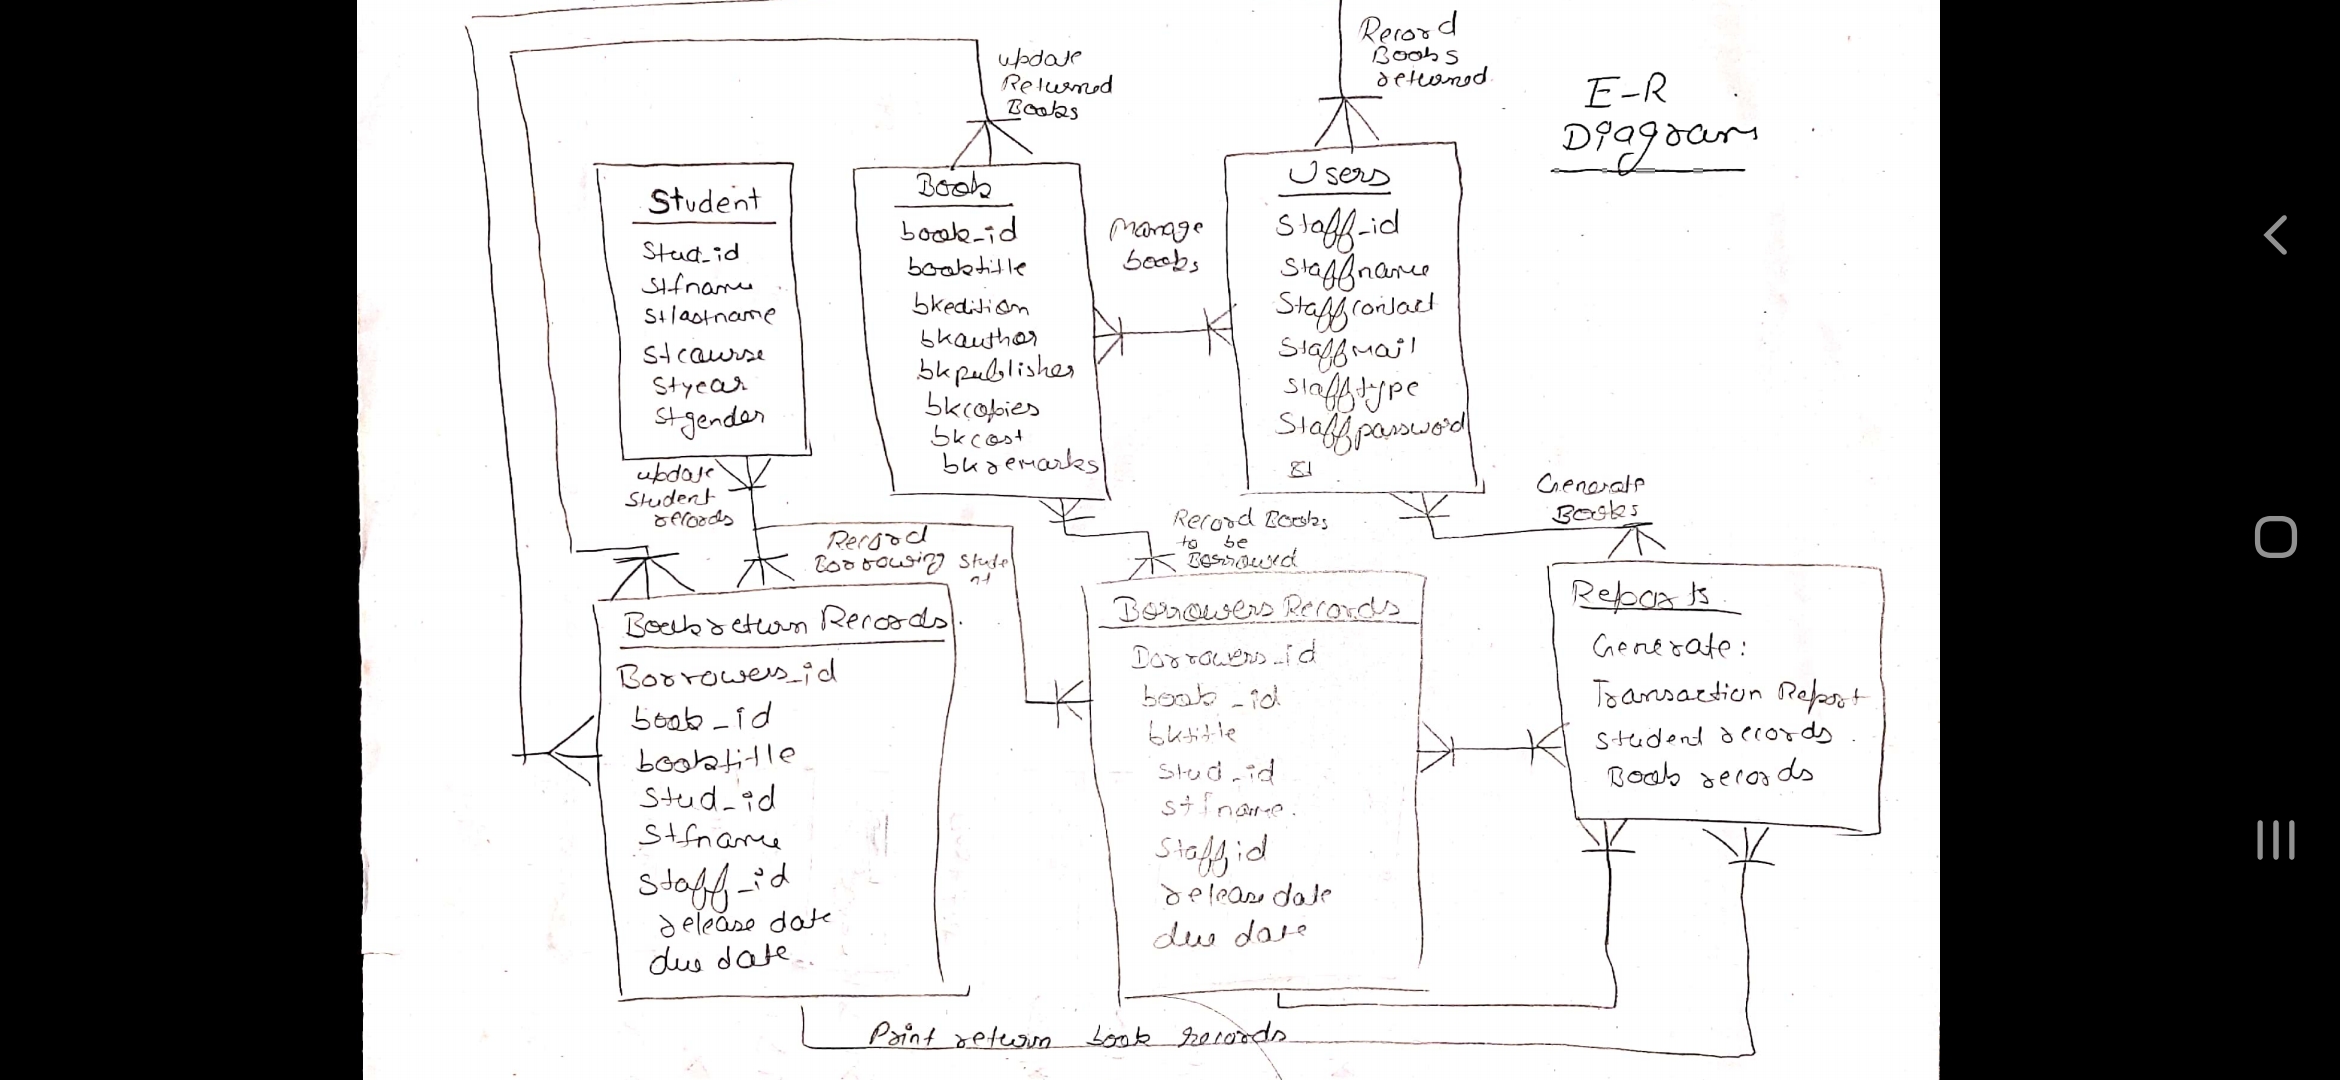 E-R
Diagram
update
Returned
Books
Record
Books
returned
Student
Stud_id
Stfname
Stlastname
Stcourse
Styear
Stgender
Book
book_id
booktitle
bkedition
bkauthor
bkpublisher
bkcopies
bkcost
bkremarks
manage
books
Users
Staff_id
Staffname
Staffcontact
Staffmail
stafftype
Staffpassword
update
Student
records
Record
Borrowing Stude
nt
Record Books
to be
Borrowed
Generate
Books
Book return Records
Borrowers_id
book_id
booktitle
Stud_id
Stfname
Staff_id
release date
due date
Borrowers Records
Borrowers_id
book_id
bktitle
Stud_id
stfname
Staffid
release date
due date
Reports
Generate:
Transaction Report
Student records
Book records
Print return book records